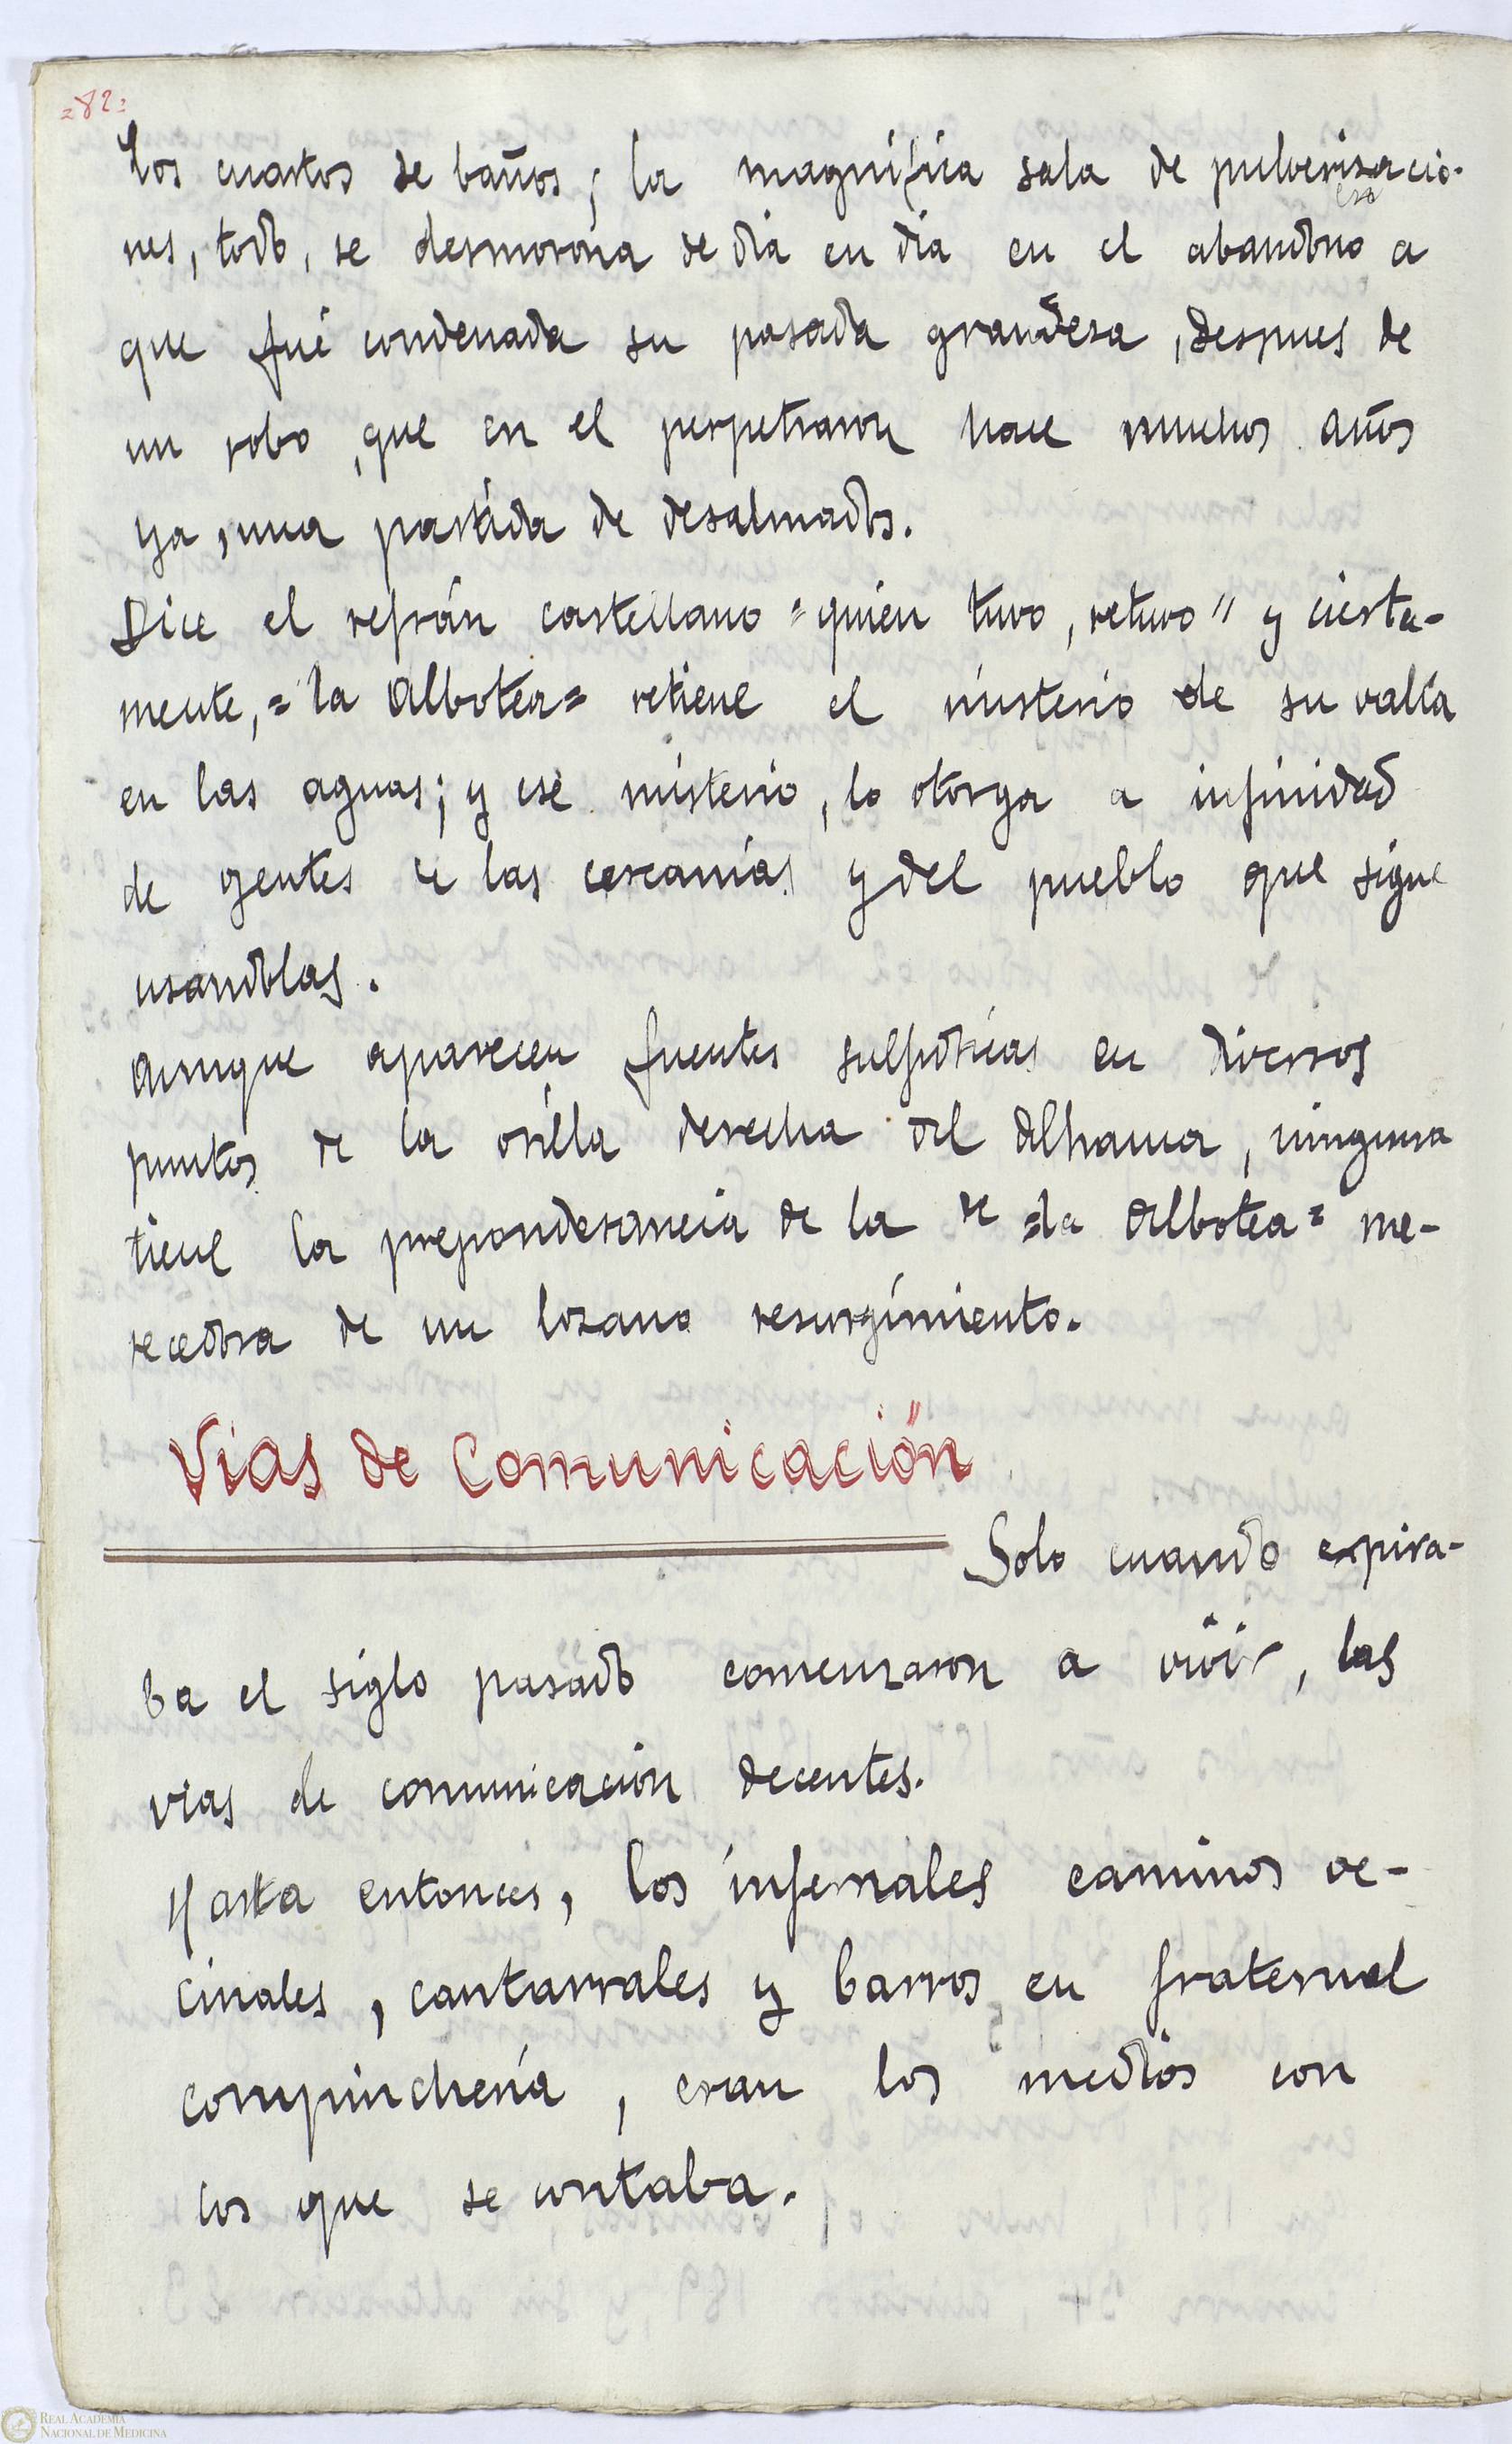 =82=
Los cuartos de baños, la magnífica sala de pulverisacio-
nes, todo, se desmorona de dia en dia en el abandono a
que fué condenada su pasada grandesa, despues de
un robo, que en el perpetraron hace muchos años
ya, una partida de desalmados.
Dice el refrán castellano "quien tuvo, retuvo" y cierta-
mente, =la Albotea= retiene el misterio de su valía
en las aguas; y ese misterio, lo otorga a infinidad
de gentes de las cercanías y del pueblo que sigue
usandolas.
Aunque aparecen fuentes sulfidricas en diversos
puntos de la orilla derecha del Alhama, ninguna
tiene la preponderancia de la de =la Albotea= me-
recedora de un lozano resurgimiento.
Vias de Comunicación
Solo cuando expira-
ba el siglo pasado comenzaron a vivir, las
vias de comunicación decentes.
Hasta entonces, los infernales caminos ve-
cinales, cantarrales y barros en fraternal
compinchería, eran los medios con
los que se contaba.
REAL ACADEMIA
NACIONAL DE MEDICINA